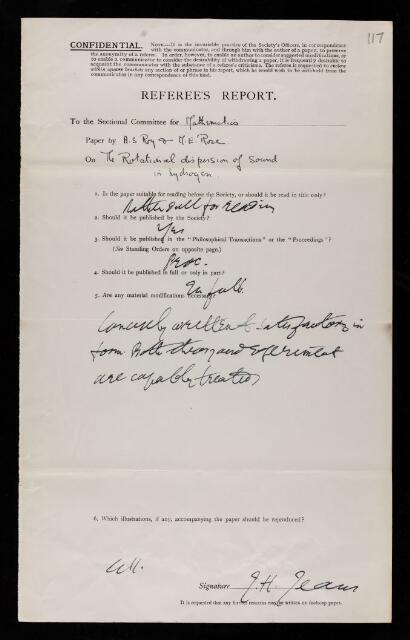 117
CONFIDENTIAL. NOTE.—It is the invariable practice of the Society's Officers, in correspondence
with the communicator, and through him with the author of a paper, to preserve
the anonymity of a referee. In order, however, to enable an author to consider suggested modifications, or
to enable a communicator to consider the desirability of withdrawing a paper, it is frequently desirable to
acquaint the communicator with the substance of a referee's criticisms. The referee is requested to enclose
within square brackets any section of or phrase in his report, which he would wish to be withheld from the
communicator in any correspondence of this kind.
REFEREE'S REPORT.
To the Sectional Committee for Mathematics
Paper by A.S. Roy & M.E. Rose
On The Rotational dispersion of Sound
in hydrogen.
1. Is the paper suitable for reading before the Society, or should it be read in title only?
for reading
2. Should it be published by the Society?
Yes
3. Should it be published in the "Philosophical Transactions" or the "Proceedings"?
(See Standing Orders on opposite page.)
Proc.
4. Should it be published in full or only in part?
In full.
5. Are any material modifications necessary?
Concisely written & satisfactory in
form. Both theory and experiment
are capably treated
6. Which illustrations, if any, accompanying the paper should be reproduced?
All.
Signature J.H. Jeans
It is requested that any further remarks may be written on foolscap paper.